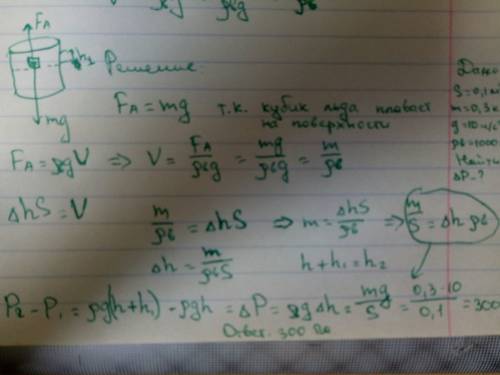 F_A
h_1
mg
Решение:
F_A = mg т.к. кубик льда плавает
на поверхности
F_A = ρgV ⇒ V = F_A/ρвg = mg/ρвg = m/ρв
ΔhS = V
m/ρв = ΔhS ⇒ m = ΔhS/ρв ⇒ m/S = Δh ρв
Δh = m/ρвS
h + h_1 = h_2
P_2 - P_1 = ρg(h+h_1) - ρgh = ΔP = ρgΔh = mg/S = 0,3·10/0,1 = 300
Ответ: 300 Па
Дано
S = 0,1м
m = 0,3к
g = 10 н/
ρв = 1000
Найти
ΔP - ?